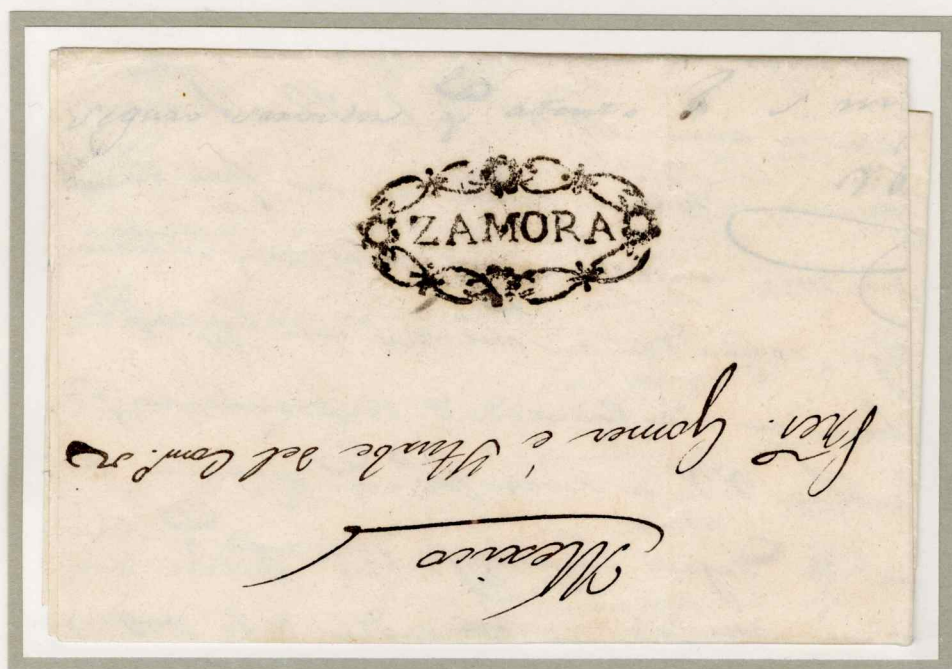 ZAMORA
Sres. Gomez é Yturbe del Com.o de
Mexico